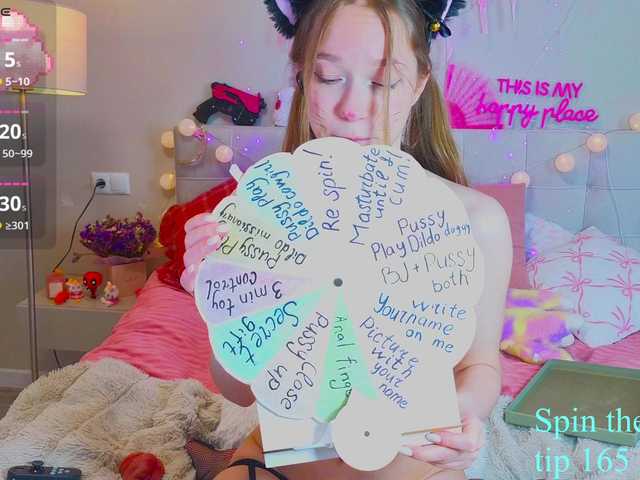 5s
5~10
20s
50~99
30s
≥301
THIS IS MY
happy place
Re spin!
Masturbate
until I
cum!
Pussy
Play Dildo doggy
BJ + Pussy
both
write
Your name
on me
Picture
with
your
name
Anal
Pussy close
up
Secret
gift
3 min toy
Control
Dildo missionary
Pussy Play
Dildo cowgirl
Spin the
tip 165